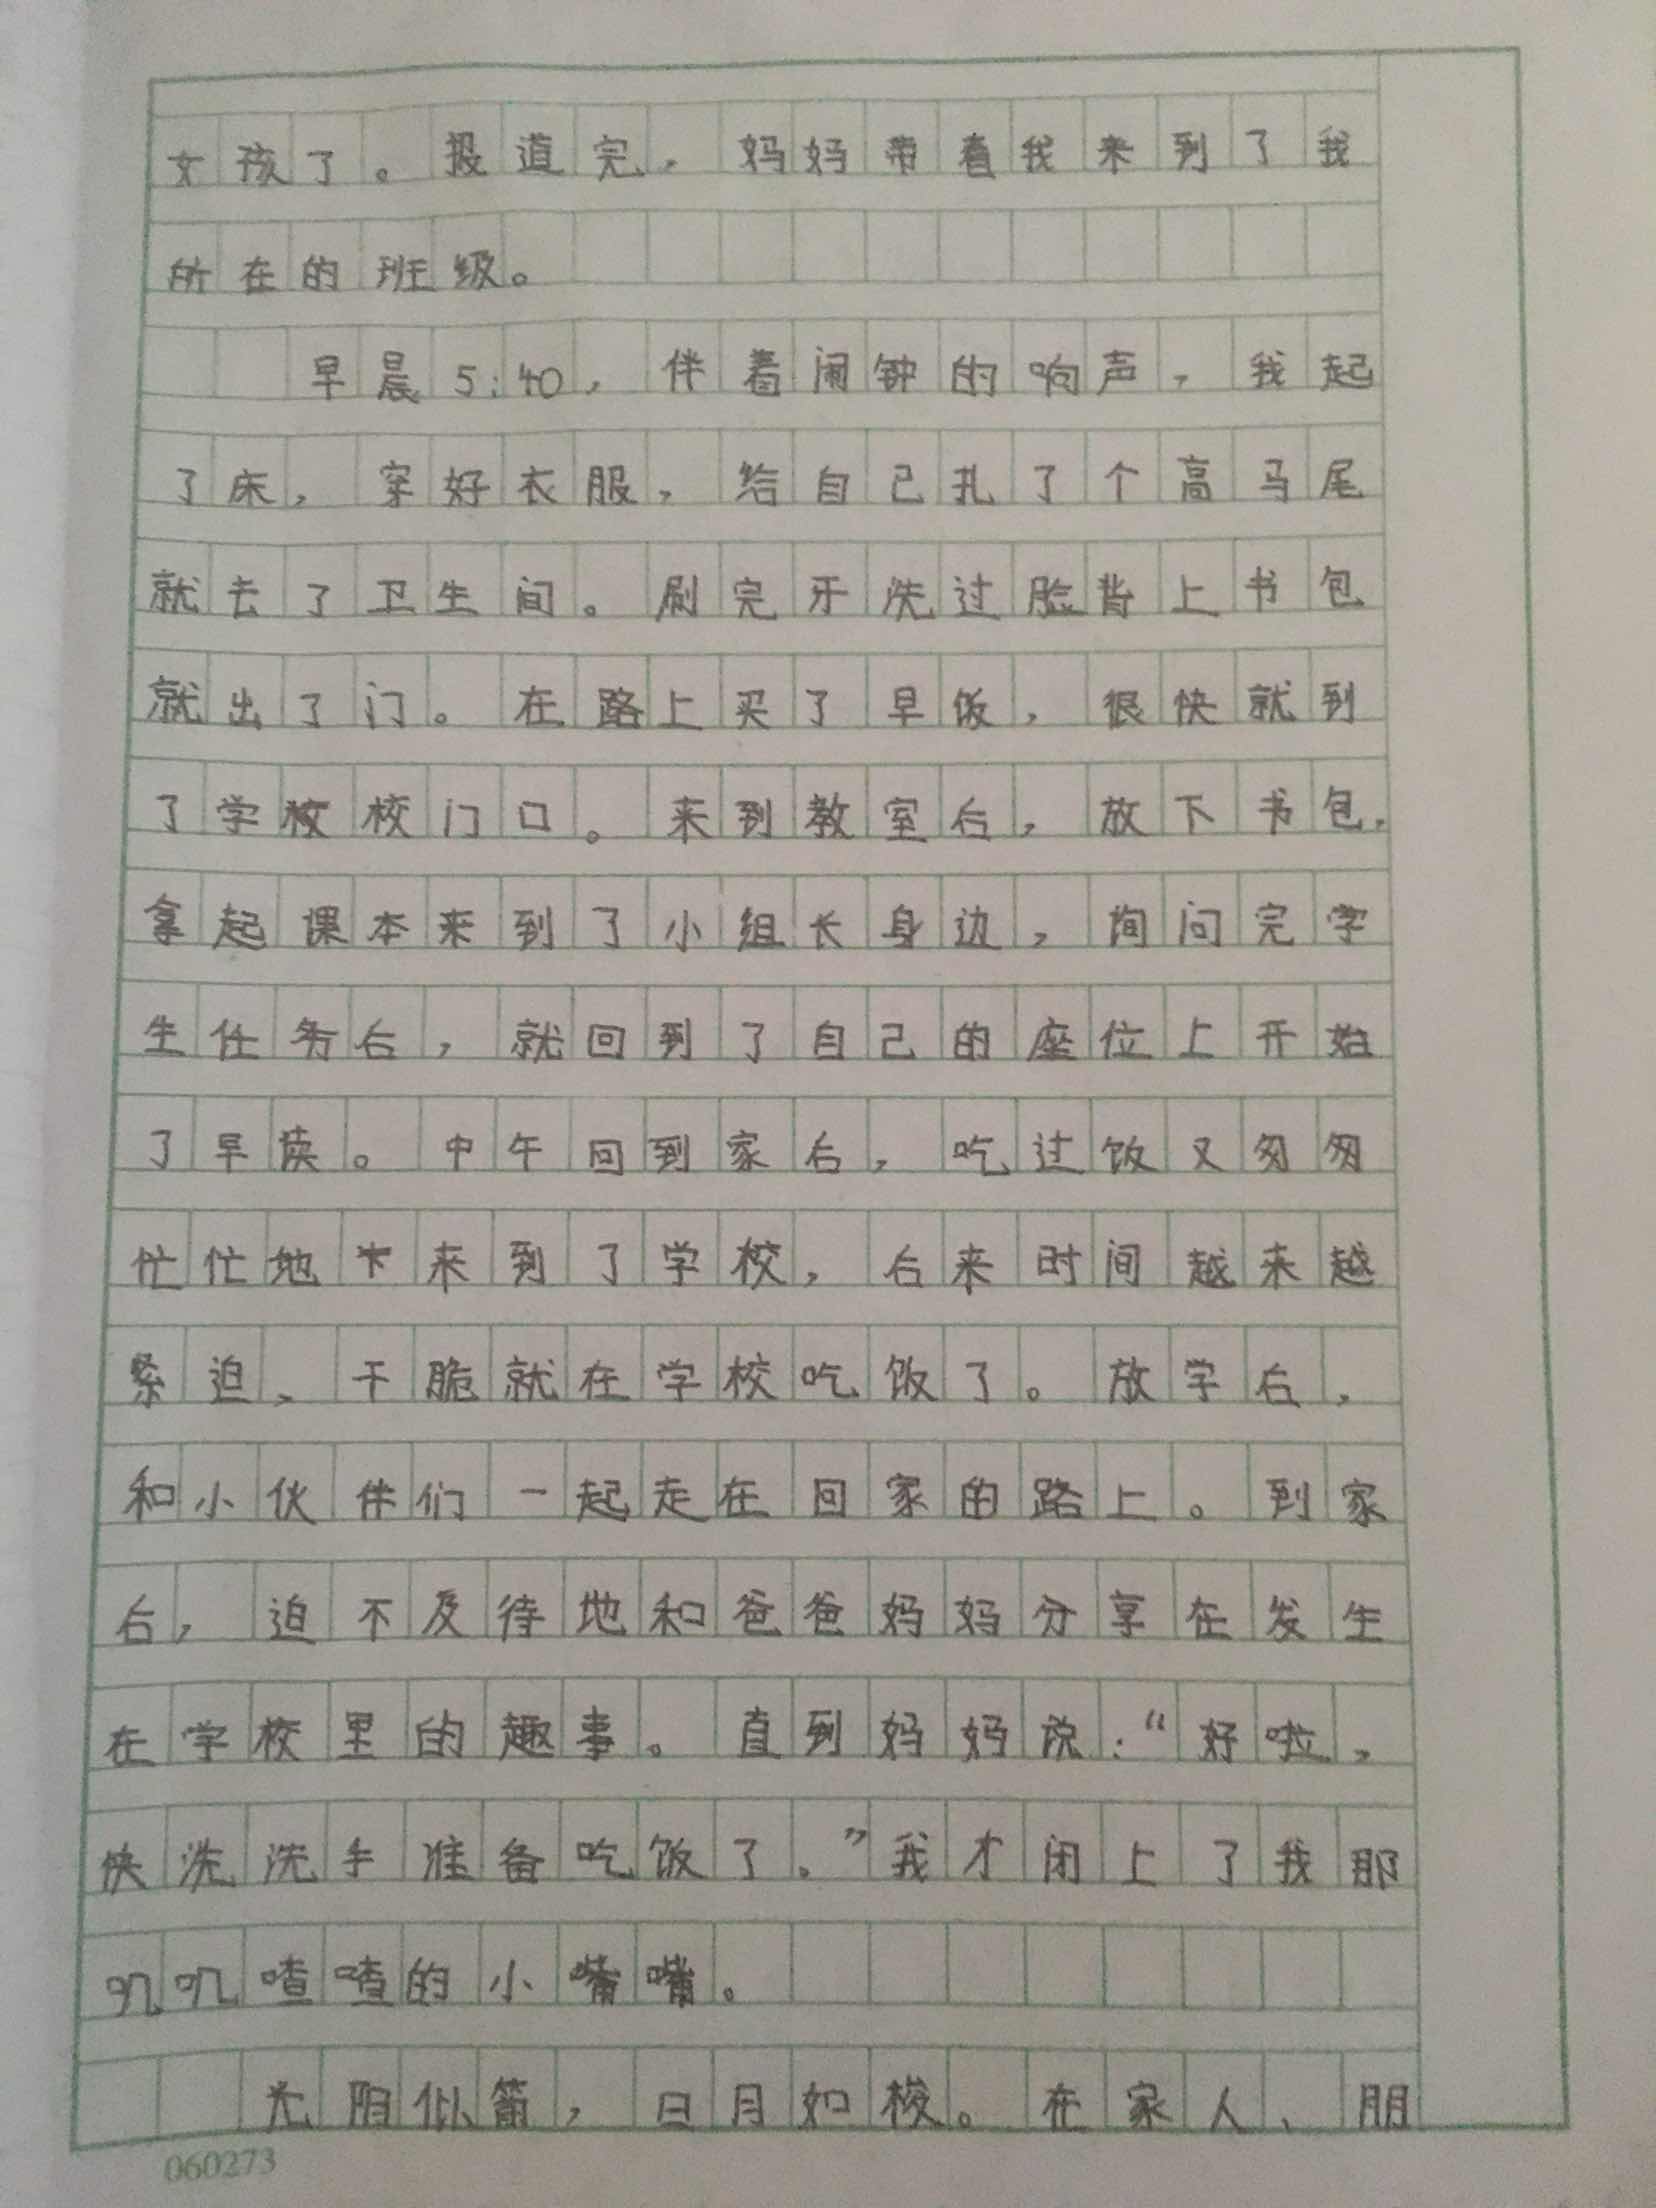 女孩了。报道完，妈妈带着我来到了我
所在的班级。
早晨5:40，伴着闹钟的响声，我起
了床，穿好衣服，给自己扎了个高马尾
就去了卫生间。刷完牙洗过脸背上书包
就出了门。在路上买了早饭，很快就到
了学校校门口。来到教室后，放下书包，
拿起课本来到了小组长身边，询问完学
生任务后，就回到了自己的座位上开始
了早读。中午回到家后，吃过饭又匆匆
忙忙地来到了学校，后来时间越来越
紧迫、干脆就在学校吃饭了。放学后，
和小伙伴们一起走在回家的路上。到家
后，迫不及待地和爸爸妈妈分享在发生
在学校里的趣事。直到妈妈说：“好啦，
快洗洗手准备吃饭了。”我才闭上了我那
叽叽喳喳的小嘴嘴。
光阴似箭，日月如梭。在家人、朋
060273